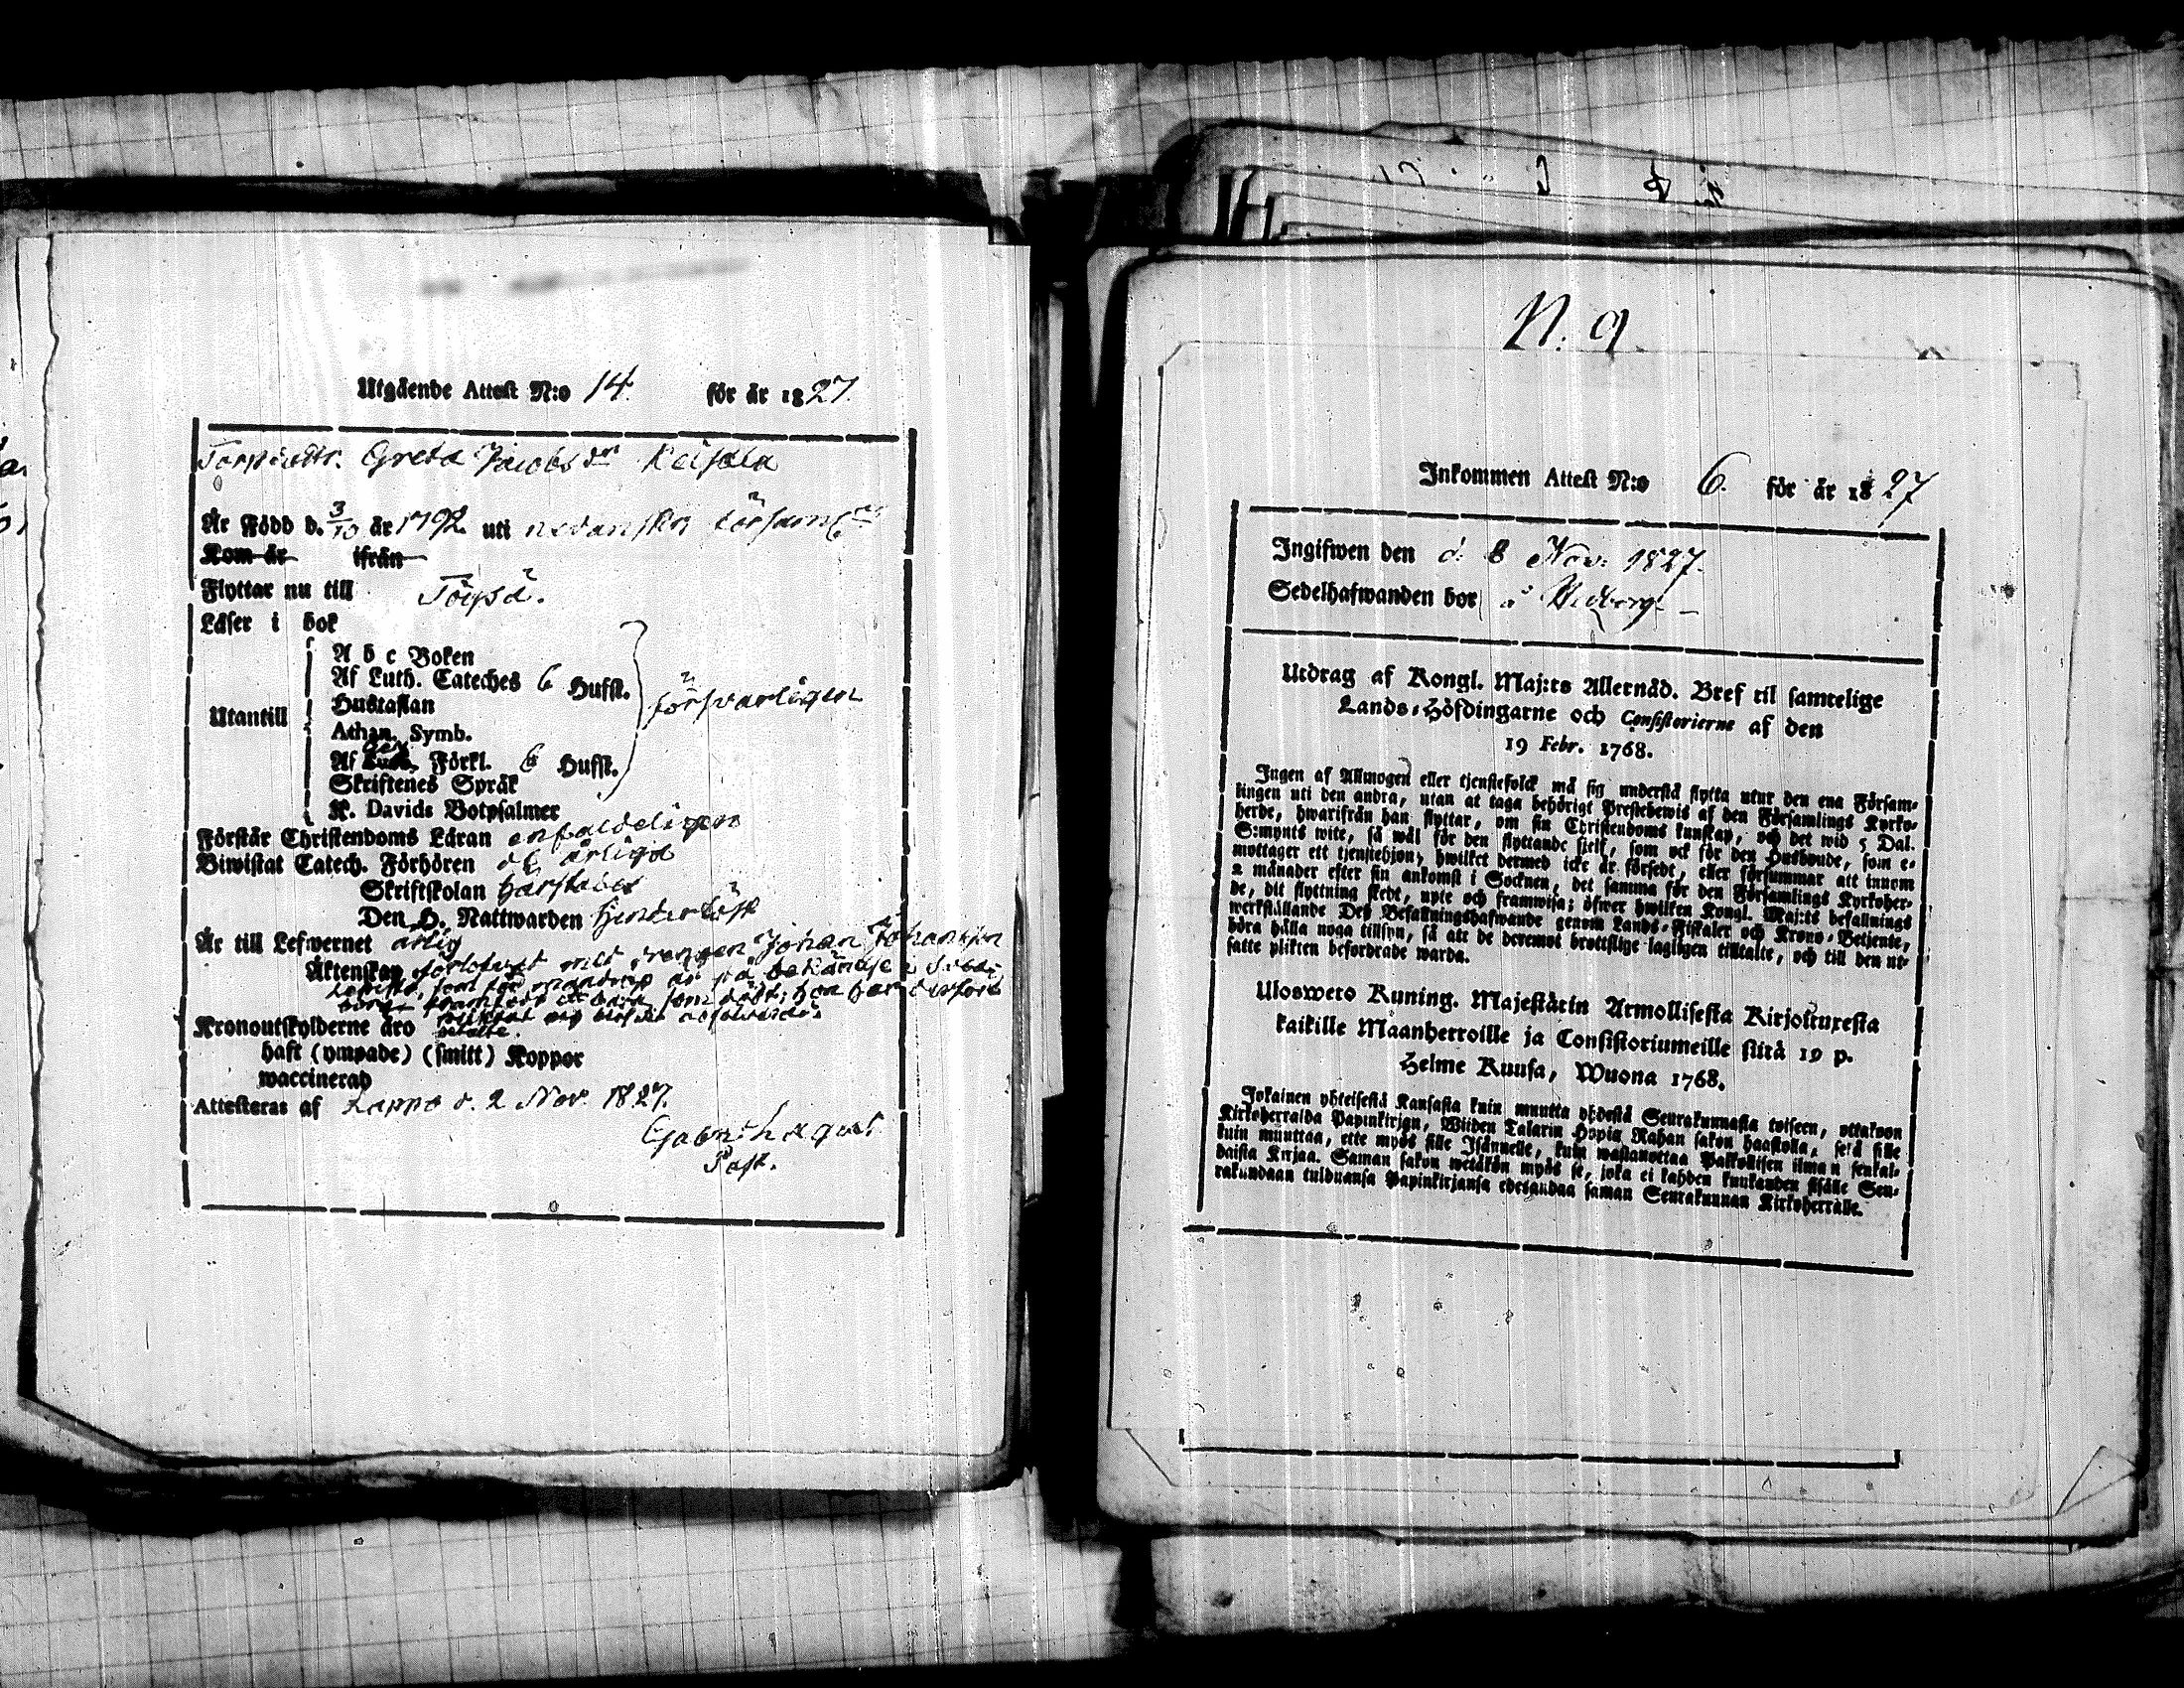 Utgående Attest N:o 14 för år 1827.
Greta Jacobsdr Keisala
Är Född d. 3/10 år 1792 uti nedanskr. församl.
Kom år ifrån
Flyttar nu till Töysä.
Läser i bok
Utantill
A b c Boken
Af Luth. Cateches 6 Hufst.
Hustaflan
Athan. Symb.
Af Förkl. 6 Hufst.
Skriftenes Språk
K. Davids Botpsalmer
försvarligen
Förstår Christendoms Läran enfaldeligen
Biwistat Catech. Förhören de årliga
Skriftskolan härstädes
Den H. Nattwarden hinderlös
Är till Lefwernet ärlig
Äktenskap förlofwad med drengen Johan Johansson
som för
som dödt; hon har derföre
Kronoutskylderne äro betalte.
haft (ympade) (smitt) Koppor
waccinerad
Attesteras af Lappo d. 2 Nov. 1827.
Past.
N: 9
Inkommen Attest N:o 6. för år 1827
Ingifwen den d. 8 Nov: 1827.
Sedelhafwanden bor å
Utdrag af Kongl. Maj:ts Allernåd. Bref til samtelige
Lands-Höfdingarne och Consistorierne af den
19 Febr. 1768.
Ingen af Allmogen eller tjenstefolck må sig understå flytta utur den ena Försam-
lingen uti den andra, utan at taga behörigt Prestebewis af den Församlings Kyrko-
herde, hwarifrån han flyttar, om sin Christendoms kunskap, och det wid 5 Dal.
S:mynts wite, så wäl för den flyttande sjelf, som ock för den Husbonde, som e-
mottager ett tjenstehjon, hwilket dermed icke är försedt, eller försummar att innom
2 månader efter sin ankomst i Socknen, det samma för den Församlings Kyrkoher-
de, dit flyttning skedt, upte och framwisa; öfwer hwilken Kongl. Maj:ts befallnings
werkställande Deß Befallningshafwande genom Lands-Fiskaler och Krono-Betjente,
böra hålla noga tillsyn, så att de deremot brottslige lagligen tilltalte, och till den ut-
satte plikten befordrade warda.
Ulosweto Kuning. Majestätin Armollisesta Kirjoituxesta
kaikille Maanherroille ja Consistoriumeille siitä 19 p.
Helme Kuusa, Wuona 1768.
Jokainen yhteisestä Kansasta kuin muutta yhdestä Seurakunnasta toiseen, ottakoon
Kirkoherralda Papinkirjan, Wiiden Talarin Hopia Rahan sakon haastolla, sekä sille
kuin muuttaa, ette myös sille Isännelle, kuin wastanottaa Palkollisen ilman senkal-
daista Kirjaa. Saman sakon wetäkön myös se, joka ei kahden kuukauden sisälle Seu-
rakundaan tulduansa Papinkirjansa edesandaa saman Seurakunnan Kirkoherralle.